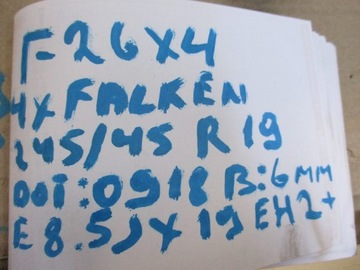 Г-26x4
4x FALKEN
245/45 R 19
DOT:0918 B:6мм
E 8.5J X 19 EH2+